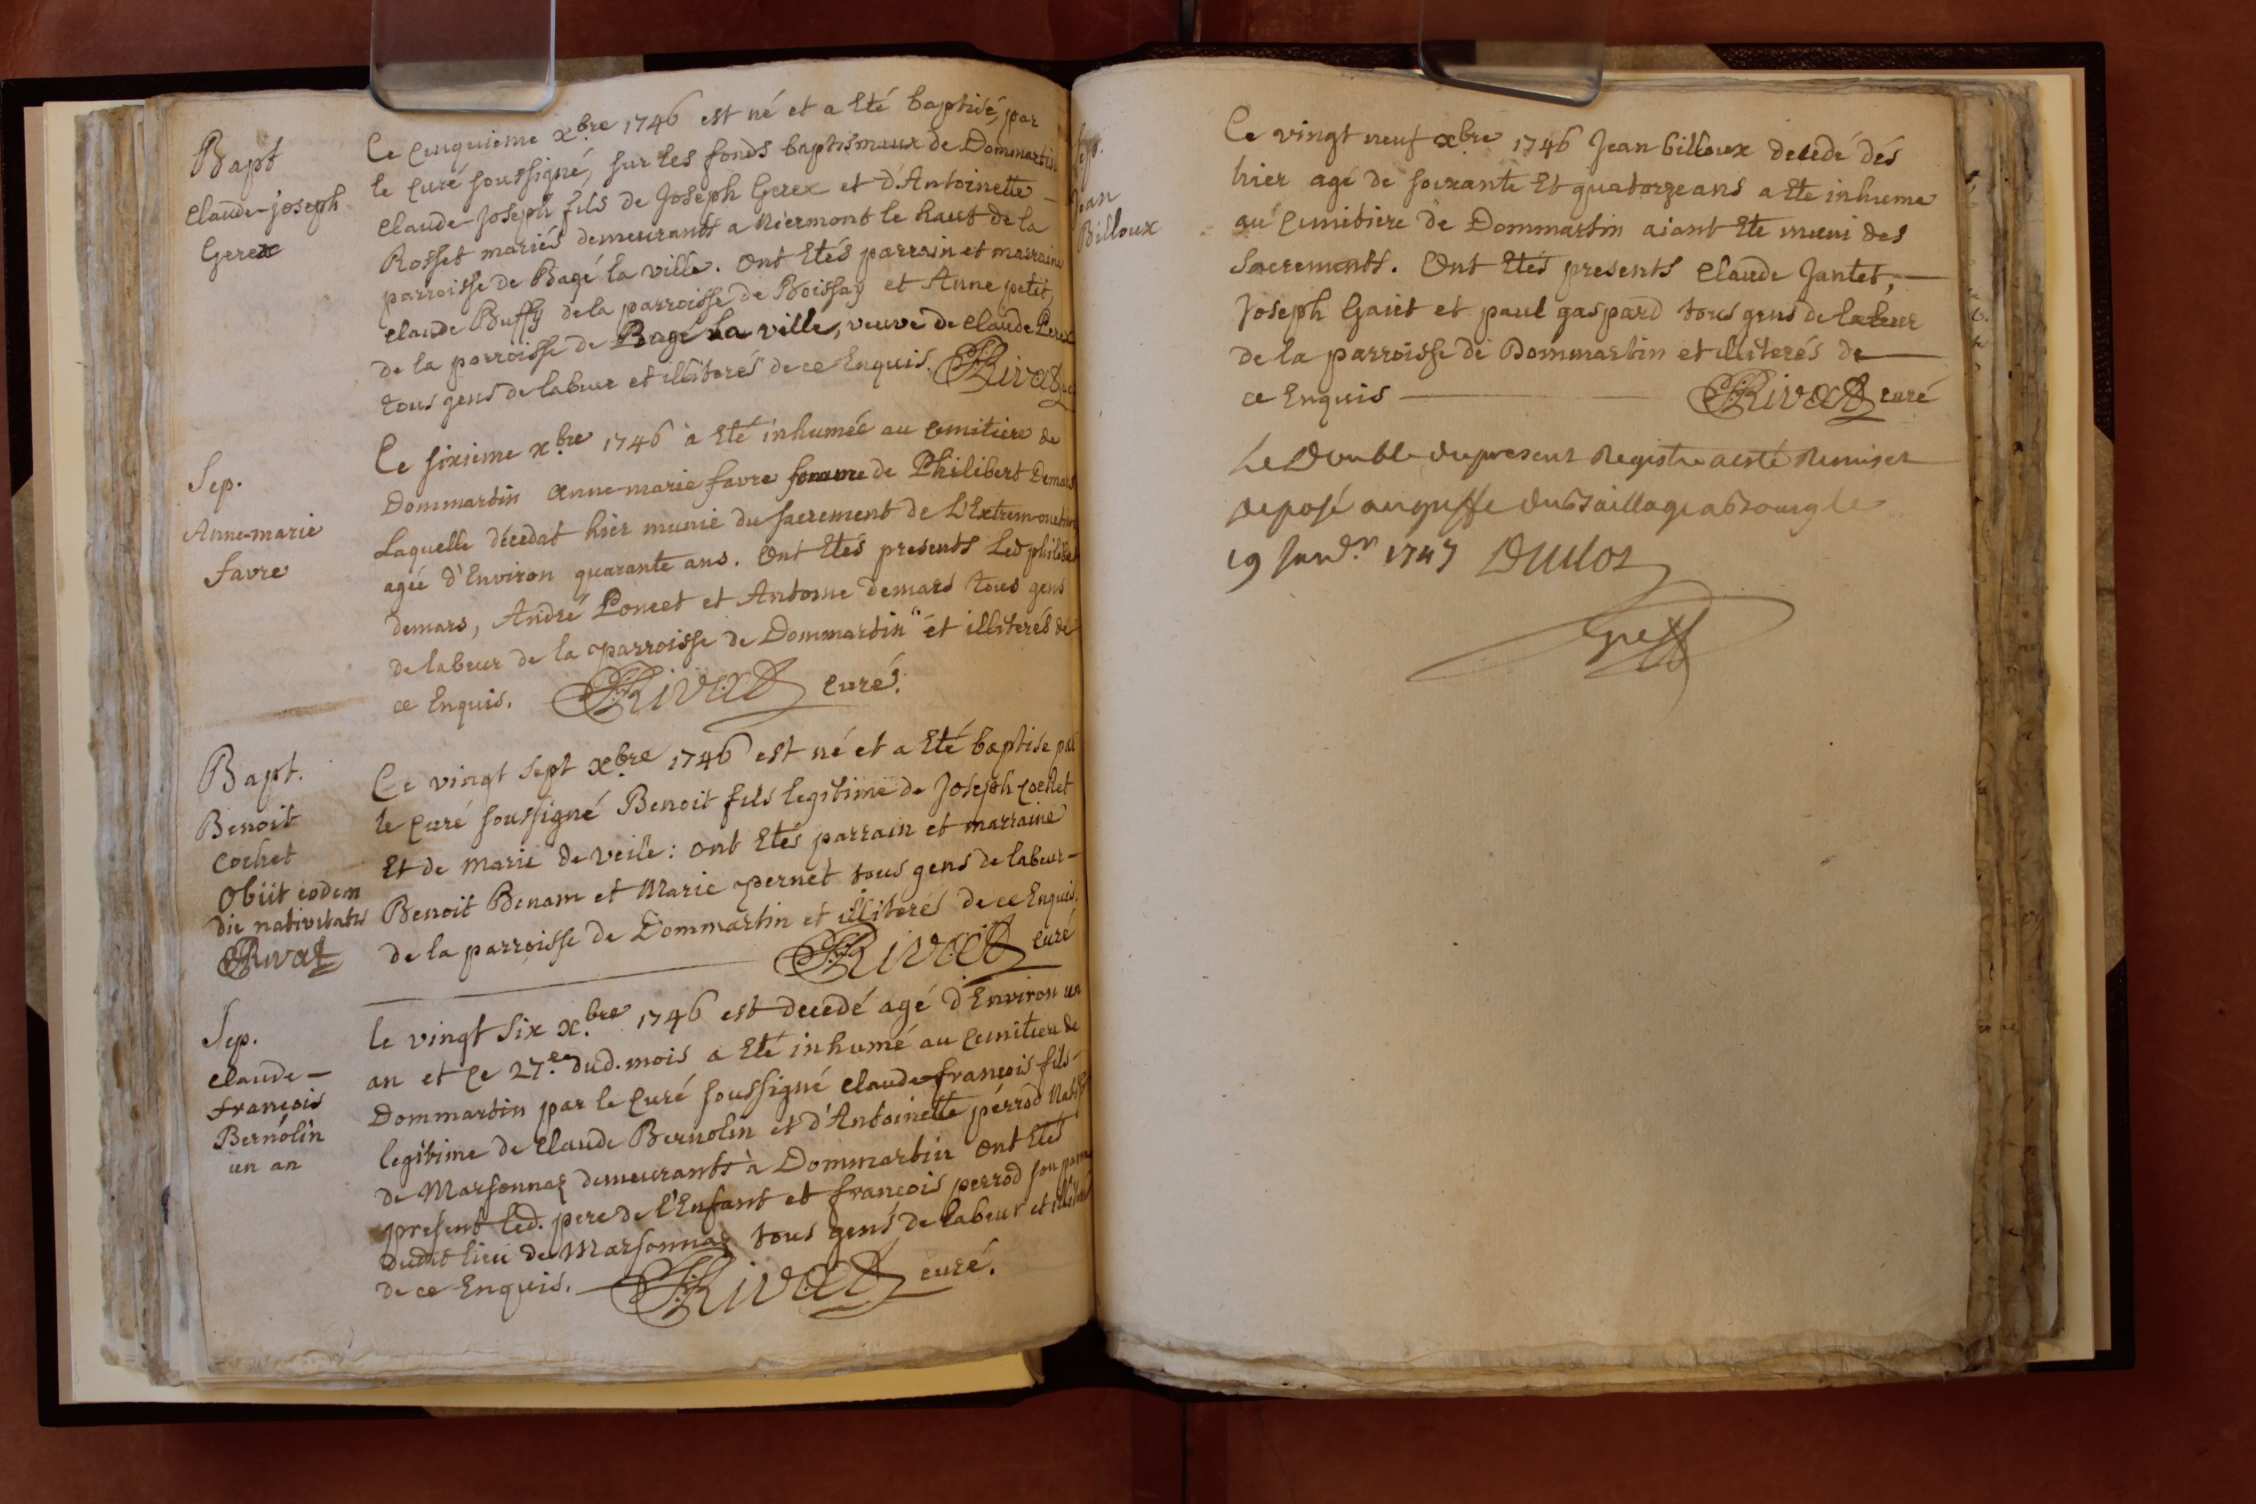 Bapt
claude-joseph
Gerex
Ce cinquieme xbre 1746 est né et a Eté baptisé, par
le Curé soussigné, sur les fonds baptismaux de Dommartin
claude-Joseph fils de Joseph Gerex et d'Antoinette
Rosset mariés demeurants a Niermont le haut de la
parroisse de Bagé la ville. Ont Etés parrain et marraine
claude Buffy de la parroisse de Boissay et Anne petit,
de la parroisse de Bagé La ville, veuve de claude Perex
tous gens de labeur et illiterés de ce Enquis. Rivat
Sep.
Anne-marie
favre
Ce sixieme xbre 1746 a Eté inhumée au cemitiere de
Dommartin Anne-marie favre femme de Philibert Demars
Laquelle décedat hier munie du sacrement de L'Extremonction
agée d'Environ quarante ans. Ont Etés presents Led philibert
demars, André Poncet et Antoine demars tous gens
de labeur de la parroisse de Dommartin et illiterés de
ce Enquis. Rivat curé.
Bapt.
Benoit
cochet
Obiit eodem
die nativitatis
Rivat
Ce vingt sept xbre 1746 est né et a Eté baptise par
le Curé soussigné Benoit fils legitime de Joseph cochet
Et de marie de veile: ont Etés parrain et marraine
Benoit Benam et Marie pernet tous gens de labeur
de la parroisse de Dommartin et illiterés de ce Enquis.
Rivat curé
Sep.
claude-
françois
Bernolin
un an
le vingt six xbre 1746 est decedé agé d'Environ un
an et Ce 27e dud. mois a Eté inhumé au Cemitiere de
Dommartin par le Curé soussigné claude-françois fils
legitime de claude Bernolin et d'Antoinette perrod
de Marsonnaz demeurants à Dommartin Ont Etés
present led. pere de l'Enfant et françois perrod son
dudit lieu de Marsonnaz tous gens de labeur et
de ce Enquis. Rivat curé.
Sep.
Jean
Billoux
Ce vingt neuf xbre 1746 Jean billoux decedé dés
hier agé de soixante Et quatorze ans a Ete inhume
au Cemitiere de Dommartin aiant Ete muni des
Sacrements. Ont Etés presents Claude Jantet,
Joseph Gaiet et paul gaspard tous gens de labeur
de la parroisse de Dommartin et illiterés de
ce Enquis Rivat curé
Le Double du present Registre a esté Remis et
deposé au greffe du Bailliage a Bourg le
19 Janv.r 1747 Duclos
Greff